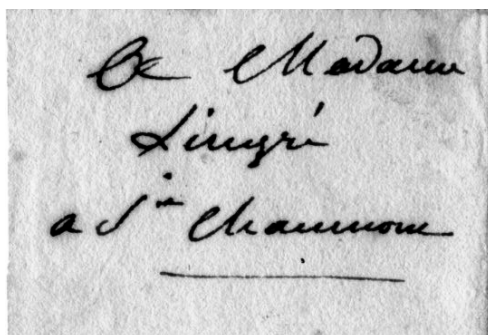 A Madame
Lingré
a St Chaumont